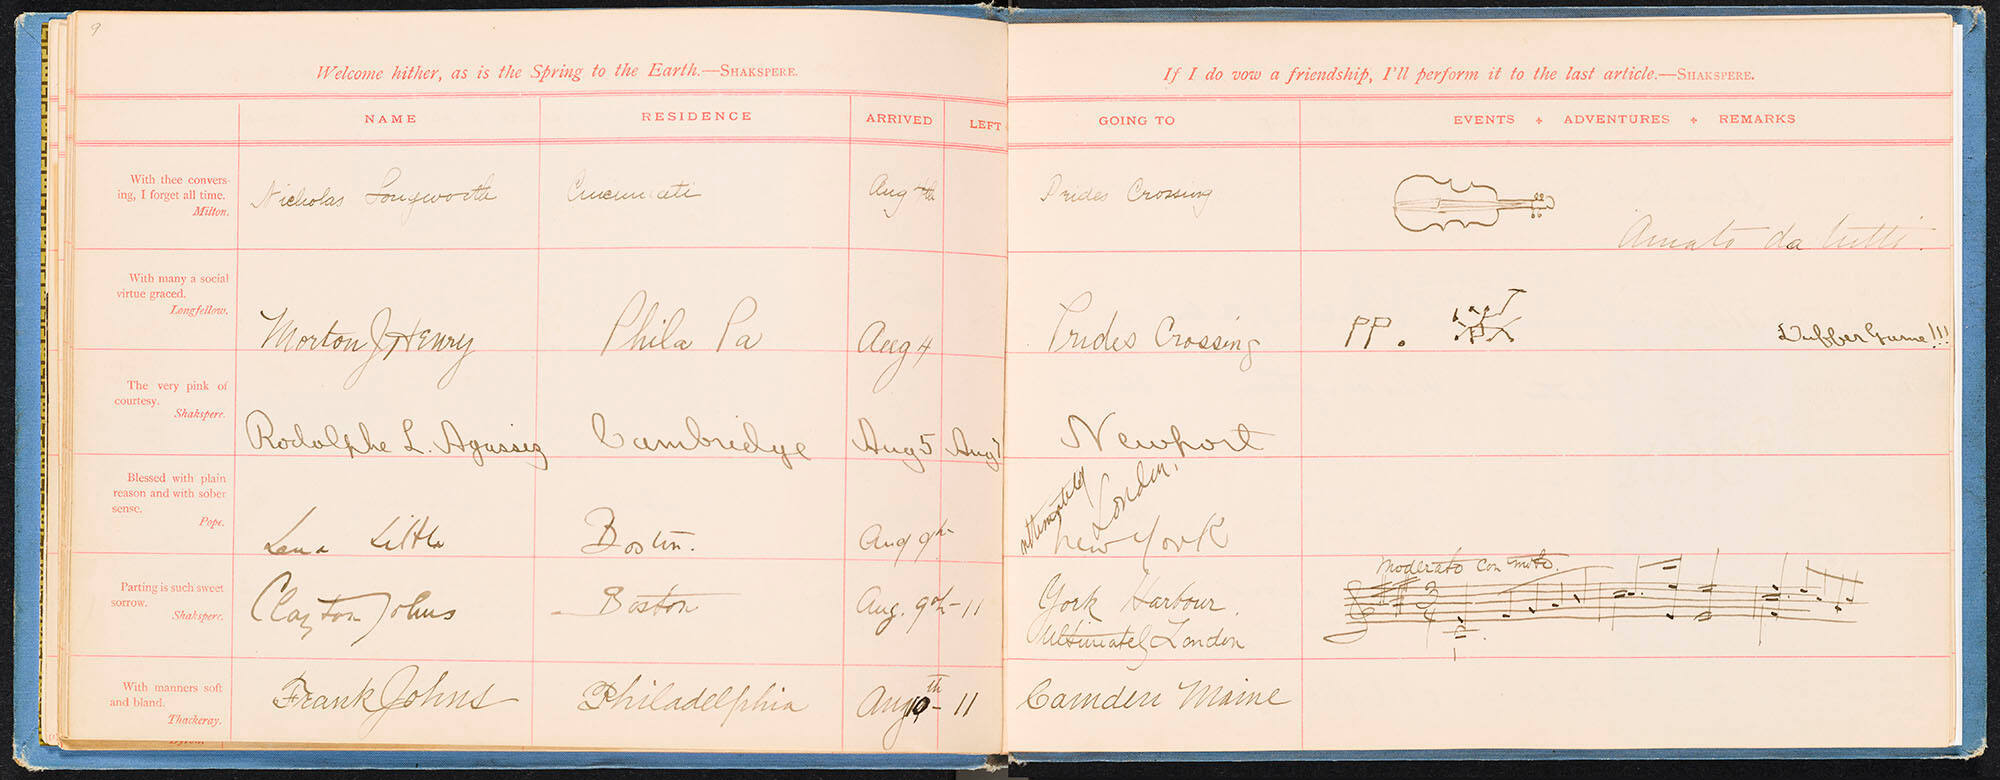 9
Welcome hither, as is the Spring to the Earth.—SHAKSPERE.
If I do vow a friendship, I'll perform it to the last article.—SHAKSPERE.
NAME RESIDENCE ARRIVED LEFT GOING TO EVENTS ADVENTURES REMARKS
With thee convers-
ing, I forget all time.
Milton.
Nicholas Longworth Cincinnati Aug 4th Prides Crossing
Amato da tutti.
With many a social
virtue graced.
Longfellow.
Morton J Henry Phila Pa Aug 4 Prides Crossing PP. Duffer Game!!!
The very pink of
courtesy.
Shakspere.
Rodolphe L. Agassiz Cambridge Aug 5 Aug 7 Newport
Blessed with plain
reason and with sober
sense.
Pope.
Lena Little Boston. Aug 9th New York
ultimately London.
Parting is such sweet
sorrow.
Shakspere.
Clayton Johns Boston Aug. 9th– 11 York Harbour.
Ultimately London
Moderato con moto.
3
4
With manners soft
and bland.
Thackeray.
Frank Johns Philadelphia Aug 10th – 11 Camden Maine
Byron.